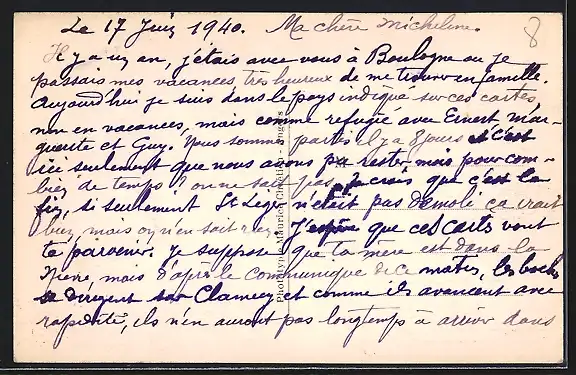 Le 17 Juin 1940. Ma chère Micheline. 8
Il y a un an, j'étais avec vous à Boulogne ou je
passais mes vacances très heureux de me trouver en famille.
Aujourd'hui je suis dans le pays indiqué sur ces cartes
non en vacances, mais comme refugié avec Ernest Mar-
guerite et Guy. Nous sommes partis il y a 8 jours et c'est
ici seulement que nous avons pu rester mais pour com-
bien de temps? on ne sait pas. Je crois que c'est la
fin, si seulement St Leger n'était pas démoli ça irait
bien, mais on n'en sait rien. J'espère que ces carts vont
te parvenir. Je suppose que ta mère est dans la
mais d'après le communiqué de ce matin, les boches
se dirigent sur Clamecy et comme ils avancent avec
rapidité, ils n'en auront pas longtemps à arriver dans
Phototypie Maurice